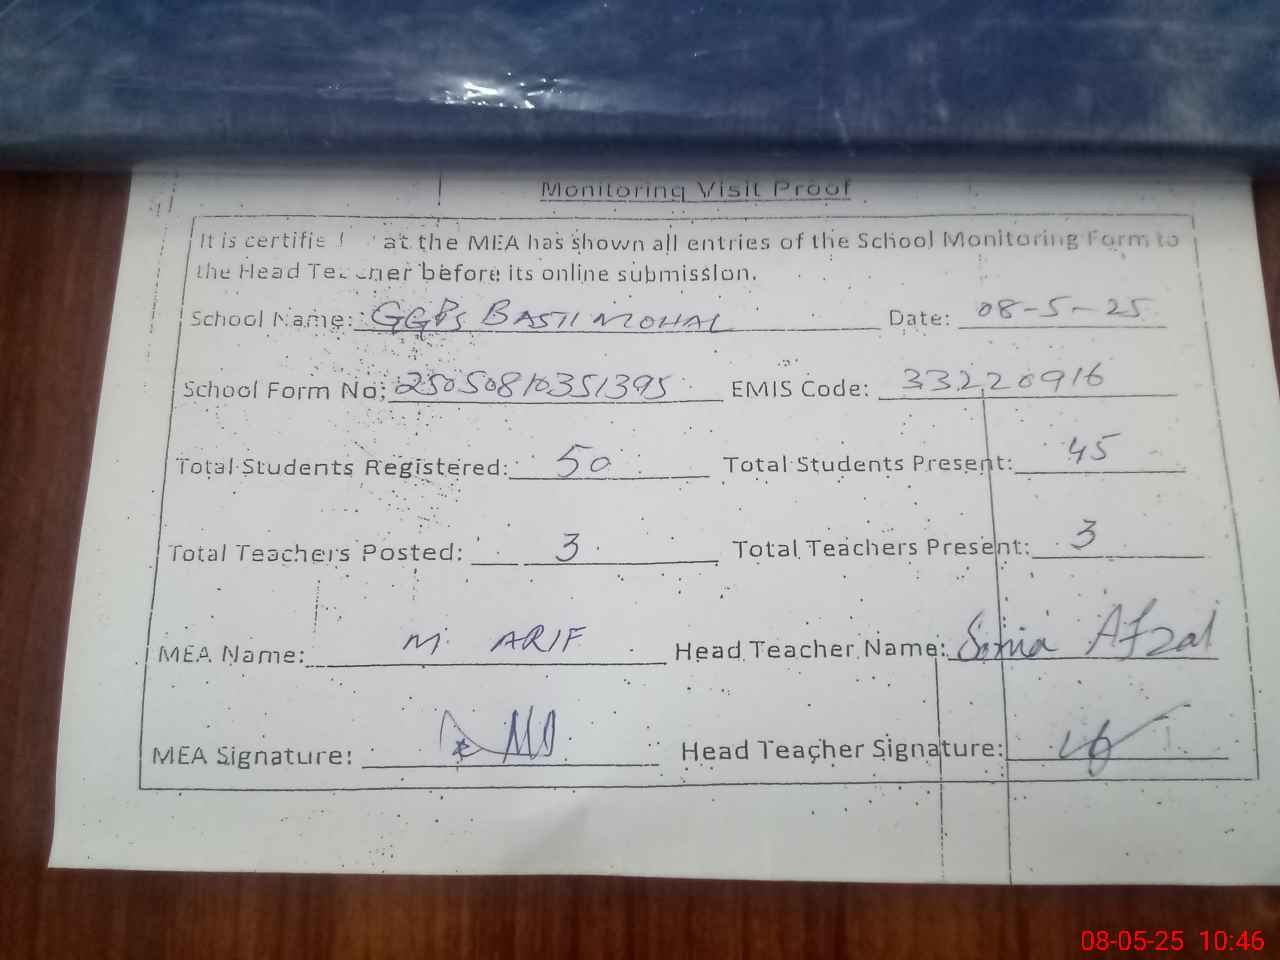 Monitoring Visit Proof
It is certifie at the MEA has shown all entries of the School Monitoring Form to
the Head Teacher before its online submission.
School Name: GGPS BASTI MOHAL Date: 08-5-25
School Form No: 25050810351395 EMIS Code: 33220916
Total Students Registered: 50 Total Students Present: 45
Total Teachers Posted: 3 Total Teachers Present: 3
MEA Name: M. ARIF Head Teacher Name: Sonia Afzal
MEA Signature: Head Teacher Signature:
08-05-25 10:46